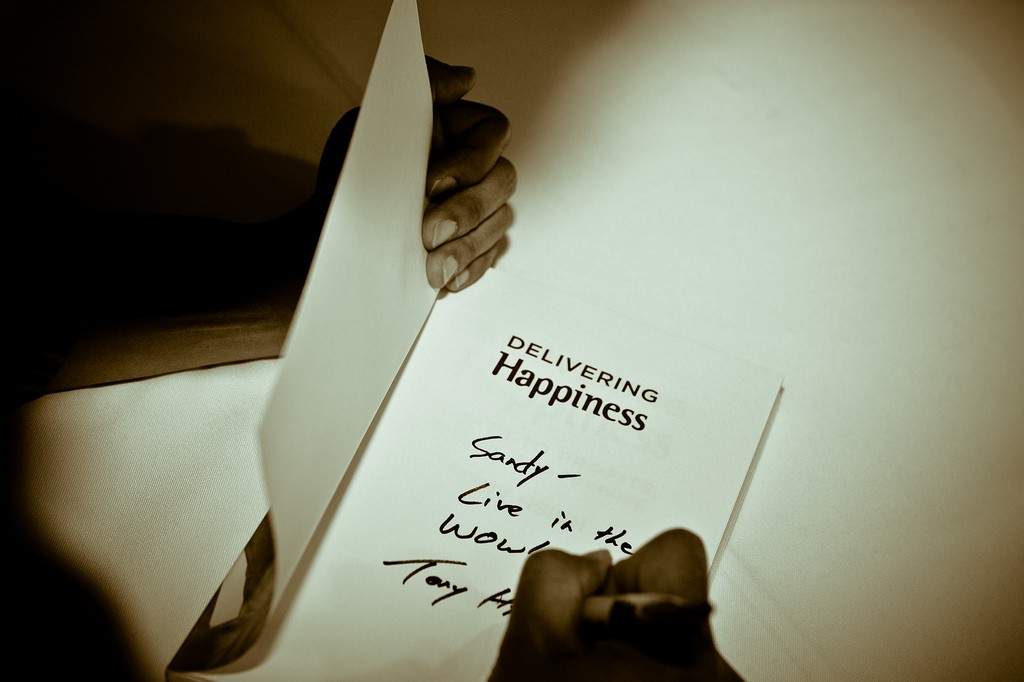 DELIVERING
Happiness
Sandy –
Live in the
WOW!
Tony